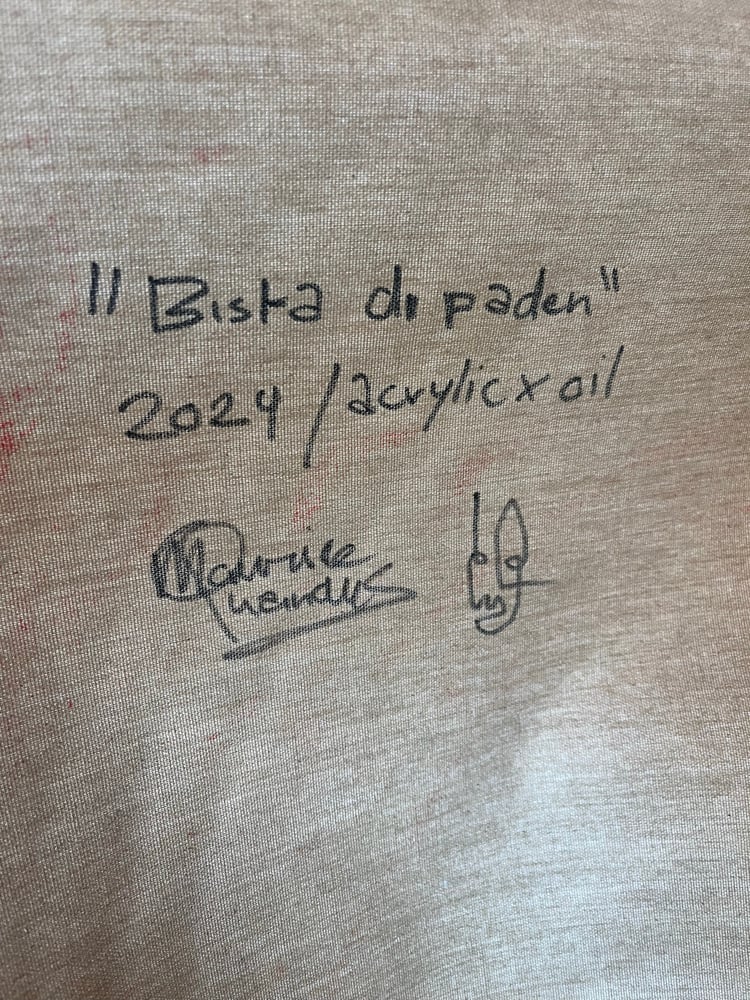 "Bista di paden"
2024 / acrylic x oil
Maurice